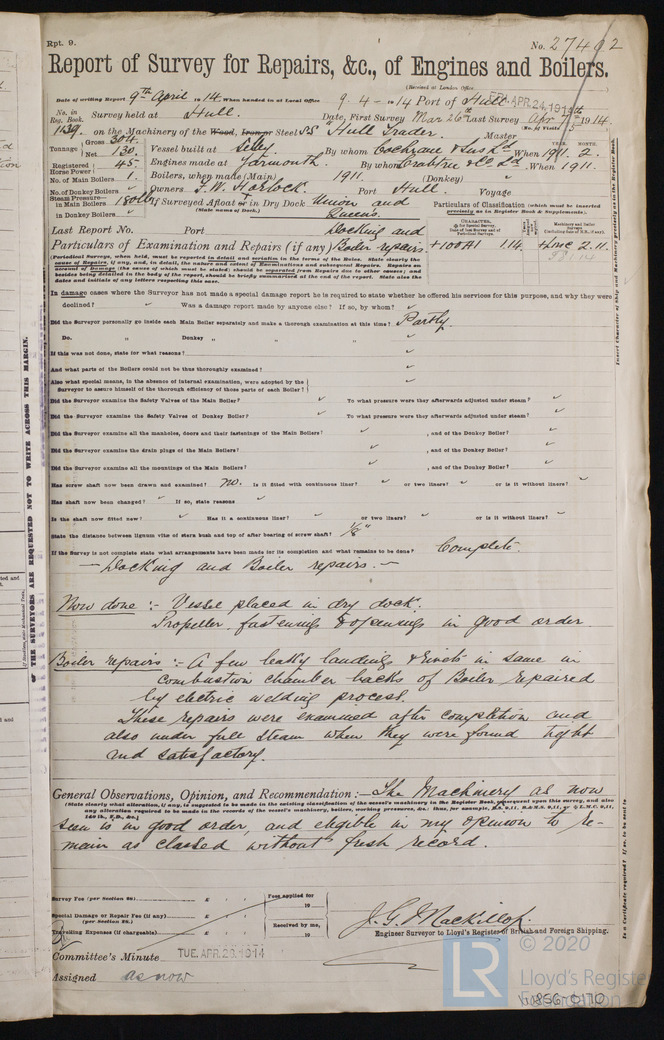 Rpt. 9.
No. 27492
Report of Survey for Repairs, &c., of Engines and Boilers.
(Received at London Office
Date of writing Report 9th April 1914. When handed in at Local Office 9. 4 - 1914 Port of Hull
FRI. APR. 24. 1914
No. in Reg. Book. Survey held at Hull. Date, First Survey Mar 26th Last Survey Apr 7th 1914.
(No. of Visits 3
1639. on the Machinery of the Wood, Iron or Steel SS Hull Trader. Master
Tonnage Gross 304. Net 130. Vessel built at Selby. By whom Cochrane & Sons Ld When 1911. 2.
YEAR. MONTH.
Registered Horse Power 45. Engines made at Yarmouth. By whom Crabtree & Co Ld. When 1911.
No. of Main Boilers 1. Boilers, when made (Main) 1911. (Donkey) "
No. of Donkey Boilers " Owners T. W. Horlock. Port Hull. Voyage
Steam Pressure in Main Boilers 180 lbs If Surveyed Afloat or in Dry Dock Union and Queens.
(State name of Dock.)
in Donkey Boilers "
Particulars of Classification (which must be inserted precisely as in Register Book & Supplements).
Last Report No. Port Docking and
Particulars of Examination and Repairs (if any) Boiler repairs. +100A1 1.14. +LMC 2.11.
(Periodical Surveys, when held, must be reported in detail and seriatim in the terms of the Rules. State clearly the cause of Repairs, if any, and, in detail, the nature and extent of Examinations and subsequent Repairs. Repairs on account of Damage (the cause of which must be stated) should be separated from Repairs due to other causes; and besides being detailed in the body of the report, should be briefly summarised at the end of the report. State also the dates and initials of any letters respecting this case.
In damage cases where the Surveyor has not made a special damage report he is required to state whether he offered his services for this purpose, and why they were
declined? Was a damage report made by anyone else? If so, by whom?
Did the Surveyor personally go inside each Main Boiler separately and make a thorough examination at this time? Partly.
Do. " Donkey " " " "
If this was not done, state for what reasons?
And what parts of the Boilers could not be thus thoroughly examined?
Also what special means, in the absence of internal examination, were adopted by the Surveyor to assure himself of the thorough efficiency of those parts of each Boiler?
Did the Surveyor examine the Safety Valves of the Main Boiler? To what pressure were they afterwards adjusted under steam?
Did the Surveyor examine the Safety Valves of Donkey Boiler? To what pressure were they afterwards adjusted under steam?
Did the Surveyor examine all the manholes, doors and their fastenings of the Main Boilers? , and of the Donkey Boiler?
Did the Surveyor examine the drain plugs of the Main Boilers? , and of the Donkey Boiler?
Did the Surveyor examine all the mountings of the Main Boilers? , and of the Donkey Boiler?
Has screw shaft now been drawn and examined? no. Is it fitted with continuous liner? or two liners? or is it without liners?
Has shaft now been changed? If so, state reasons
Is the shaft now fitted new? Has it a continuous liner? or two liners? or is it without liners?
State the distance between lignum vitæ of stern bush and top of after bearing of screw shaft? 1/8"
If the Survey is not complete state what arrangements have been made for its completion and what remains to be done? Complete.
- Docking and Boiler repairs. -
Now done :- Vessel placed in dry dock.
Propeller, fastenings & openings in good order.
Boiler repairs :- A few leaky landings & rivets in same in
combustion chamber backs of Boiler repaired
by electric welding process.
These repairs were examined after completion and
also under full steam when they were found tight
and satisfactory.
General Observations, Opinion, and Recommendation :- The Machinery as now
(State clearly what alteration, if any, is suggested to be made in the existing classification of the vessel's machinery in the Register Book, consequent upon this survey, and also
seen is in good order, and eligible in my opinion to re-
main as classed without fresh record.
Survey Fee (per Section 28) £ : :
Fees applied for
19
Special Damage or Repair Fee (if any) (per Section 28.) £ : :
Received by me,
19
Travelling Expenses (if chargeable) £ : :
J. G. MacKillop.
Engineer Surveyor to Lloyd's Register of British and Foreign Shipping.
Committee's Minute TUE. APR. 28. 1914
Assigned as now
OF THE SURVEYORS ARE REQUESTED NOT TO WRITE ACROSS THIS MARGIN.
LR
© 2020
Lloyd's Register
Foundation